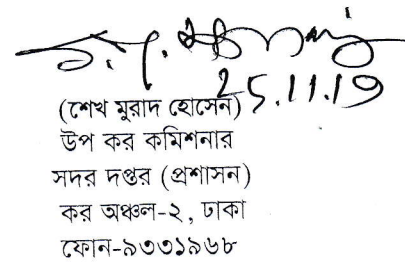 25.11.19
(শেখ মুরাদ হোসেন)
উপ কর কমিশনার
সদর দপ্তর (প্রশাসন)
কর অঞ্চল-২, ঢাকা
ফোন-৯৩৩১৯৬৮